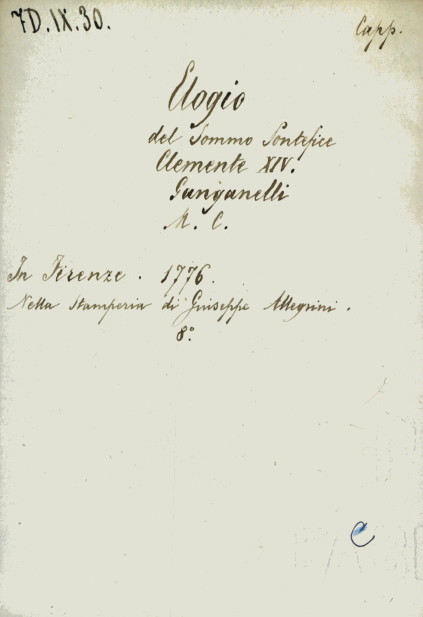 7D.IX.30.
Capp.
Elogio
del Sommo Pontefice
Clemente XIV.
Ganganelli
M. C.
In Firenze. 1776.
Nella Stamperia di Giuseppe Allegrini.
8º
C